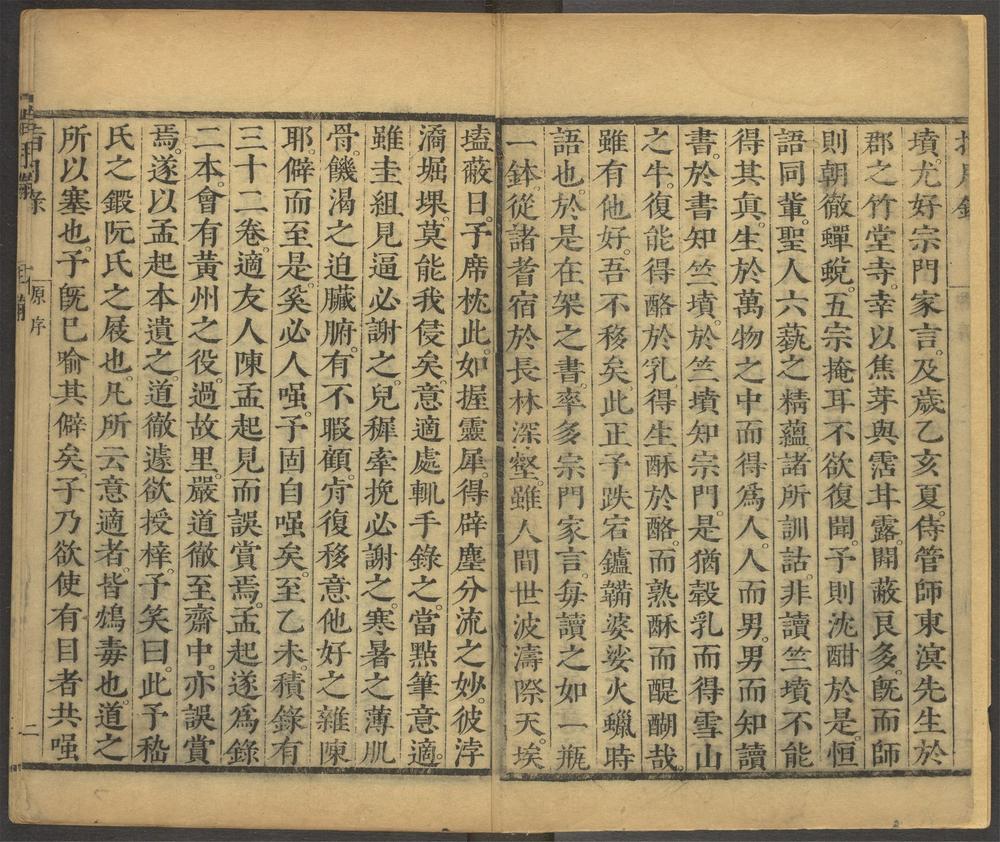 指月錄
墳。尤好宗門家言。及歲乙亥夏。侍管師東溟先生於
郡之竹堂寺。幸以焦芽與霑甘露。開蔽良多。旣而師
則朝徹蟬蛻。五宗掩耳不欲復聞。予則沈酣於是。恒
語同輩。聖人六蓺之精蘊諸所訓詁。非讀竺墳不能
得其眞。生於萬物之中而得爲人。人而男。男而知讀
書。於書知竺墳。於竺墳知宗門。是猶㲄乳而得雪山
之牛。復能得酪於乳。得生酥於酪。而熟酥而醍醐哉。
雖有他好。吾不移矣。此正予跌宕鑪鞴婆娑火蠟時
語也。於是在架之書。率多宗門家言。每讀之如一瓶
一鉢。從諸耆宿於長林深壑。雖人間世波濤際天。埃
壒蔽日。予席枕此。如握靈犀。得辟塵分流之妙。彼浡
潏堀堁。莫能我侵矣。意適處輒手錄之。當點筆意適。
雖圭組見逼必謝之。兒穉牽挽必謝之。寒暑之薄肌
骨。饑渴之迫臟腑。有不暇顧。肯復移意他好之雜陳
耶。僻而至是。奚必人嗤。予固自嗤矣。至乙未。積錄有
三十二卷。適友人陳孟起見而誤賞焉。孟起遂爲錄
二本。會有黃州之役。過故里。嚴道徹至齋中。亦誤賞
焉。遂以孟起本遺之。道徹遽欲授梓。予笑曰。此予嵇
氏之鍛阮氏之屐也。凡所云意適者。皆鴆毒也。道之
所以塞也。予旣已喻其僻矣。予乃欲使有目者共嗤
原序
二